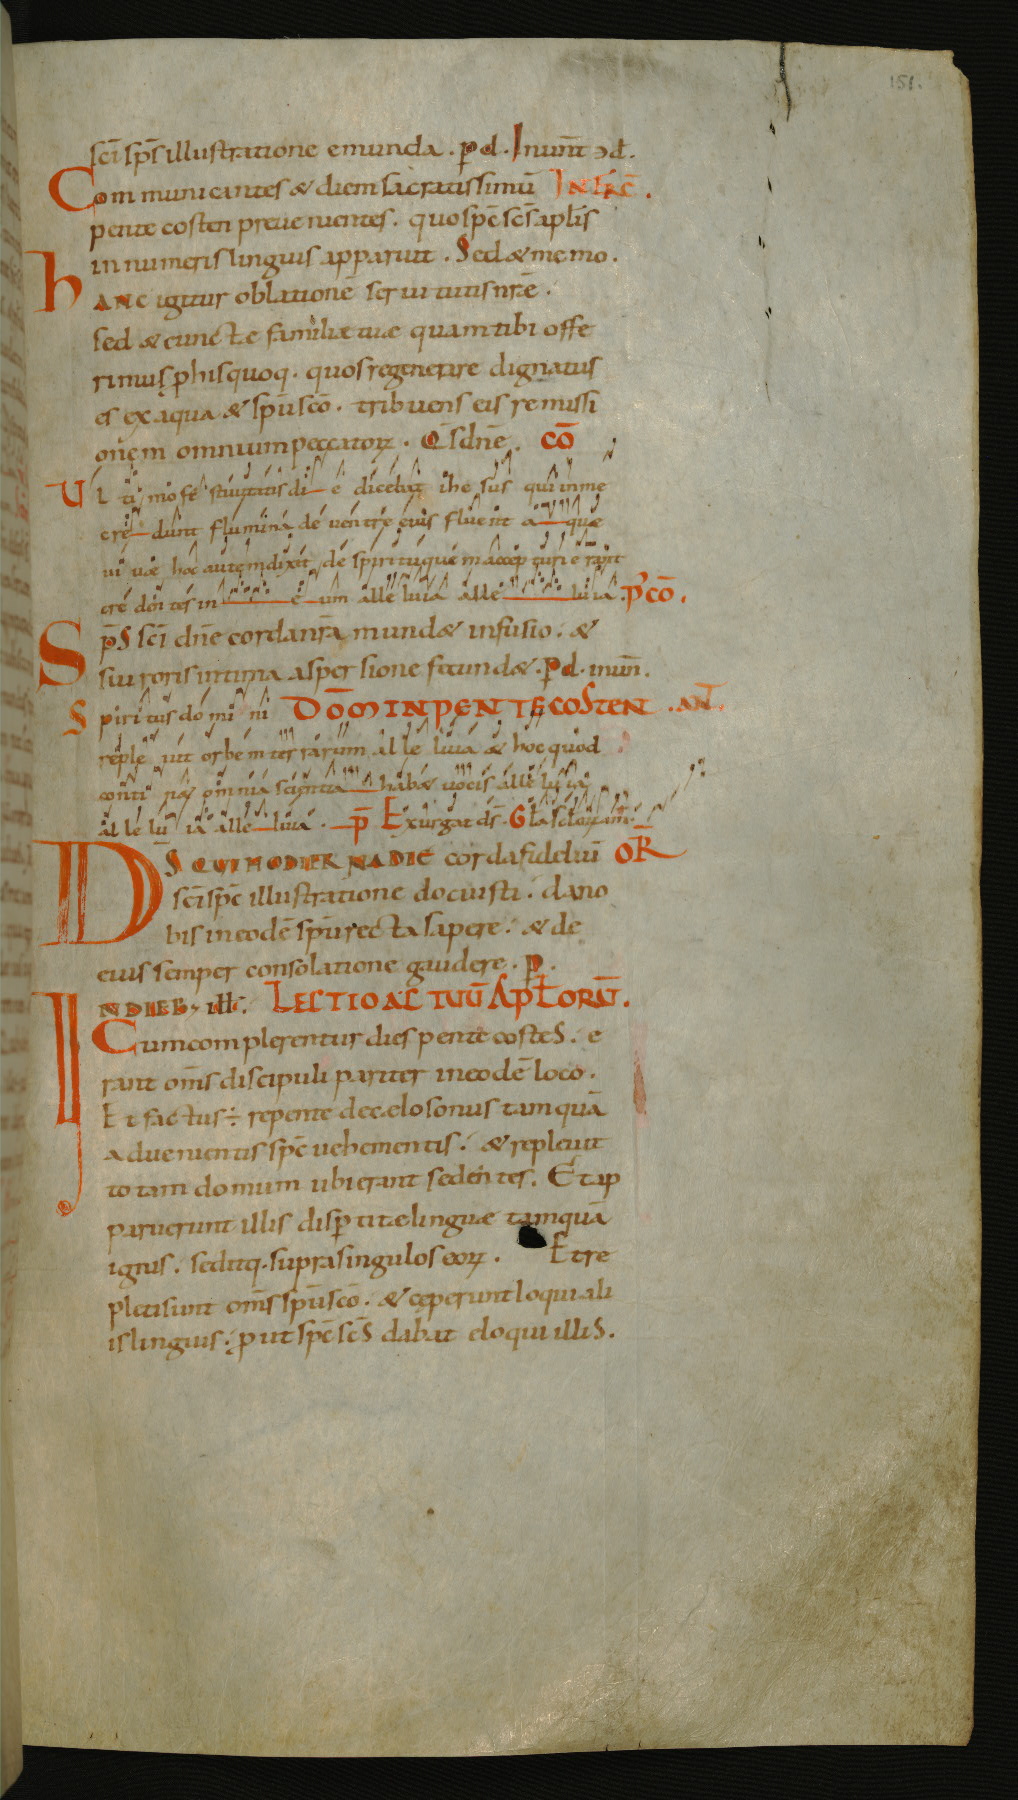 151.
sc̄i sp̄s illustratione emunda . p d . In unīt ɔd̄ .
Communicantes & diem sacratissimū INFRĒ .
pentecosten preuenientes . quo sp̄c sc̄s aplīs
innumeris linguis apparuit . Sed & memo .
hANC igitur oblationē seruitutis nr̄ę .
sed & cunctę familiæ tuæ quam tibi offe
rimus , p his quoq . quos regenerare dignatus
es ex aqua & sp̄u sc̄o . tribuens eis remissi
onem omnium peccatorꝝ . Q̄s dn̄e . CŌ
Ultimo festiuitatis die dicebat ihesus qui in me
credunt flumina de uentre eius fluent aquæ
uiuæ hoc autem dixit de spiritu quem accepturi erant
credentes in eum alleluia alleluia . P̄CŌ .
Sp̄s sc̄i dn̄e corda nr̄a mund& infusio . &
sui roris intima aspersione fecund& . P d . in un̄ .
Spiritus domini DŌM IN PENTECOSTEN . AN̄ .
repleuit orbem terrarum alleluia & hoc quod
continet omnia scientia hab& uocis alleluia
alleluia alleluia . p̄ Exurgat ds̄ . Gla seclorum am̄
DS̄ QUI HODIERNA DIE corda fideliū OR̄
sc̄i sp̄c illustratione docuisti . da no
bis in eodē sp̄u recta sapere . & de
eius semper consolatione gaudere . p .
IN DIEB, ILL̄ . LECTIO ACTUŪ APŁORŪ .
Cum complerentur dies pentecostes . e
rant om̄s discipuli pariter in eodē loco .
Et factus ÷ repente de celo sonus tamquā
aduenientis sp̄c uehementis . & repleuit
totam domum ubi erant sedentes . Et ap
paruerunt illis disptitæ linguæ tamquā
ignis . seditq . supra singulos eorꝝ . Et re
pleti sunt om̄s sp̄u sc̄o . & ceperunt loqui ali
is linguis . put sp̄c sc̄s dabat eloqui illis .